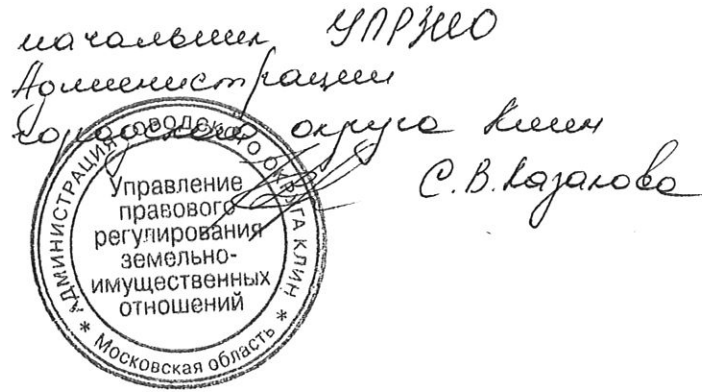 начальник УПРЗИО
Администрации
городского округа Клин
С.В. Казакова
АДМИНИСТРАЦИЯ ГОРОДСКОГО ОКРУГА КЛИН
* Московская область *
Управление
правового
регулирования
земельно-
имущественных
отношений